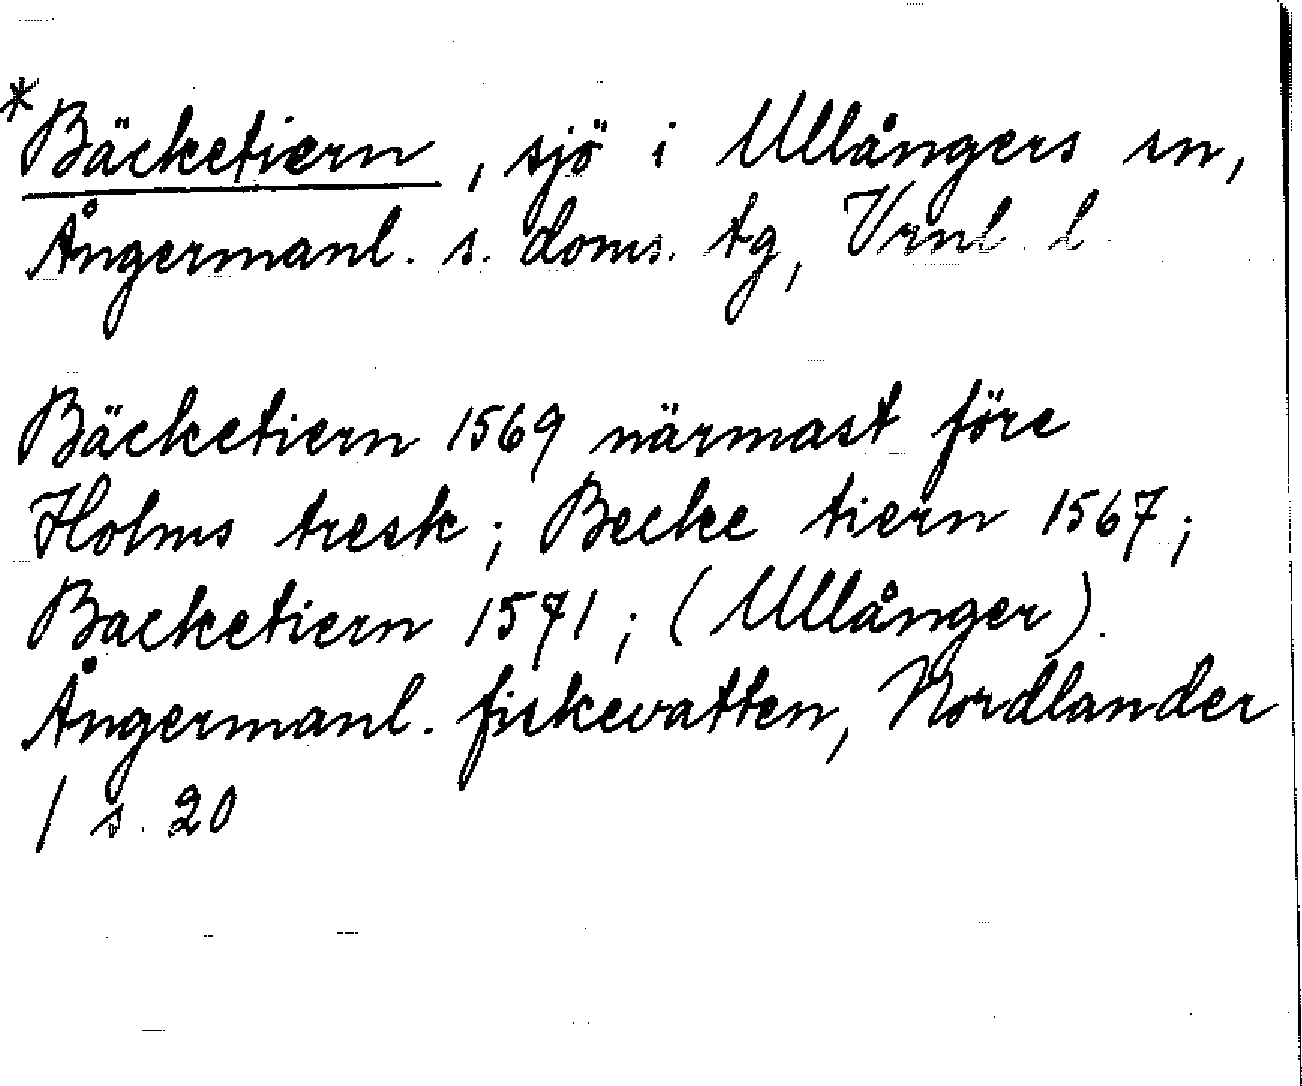 *Bäcketiern, sjö i Ullångers sn,
Ångermanl. s. doms. tg, Vrnl. l.
Bäcketiern 1569 närmast före
Holms tresk; Becke tiern 1567;
Backetiern 1571; (Ullånger).
Ångermanl. fiskevatten, Nordlander
1 s. 20